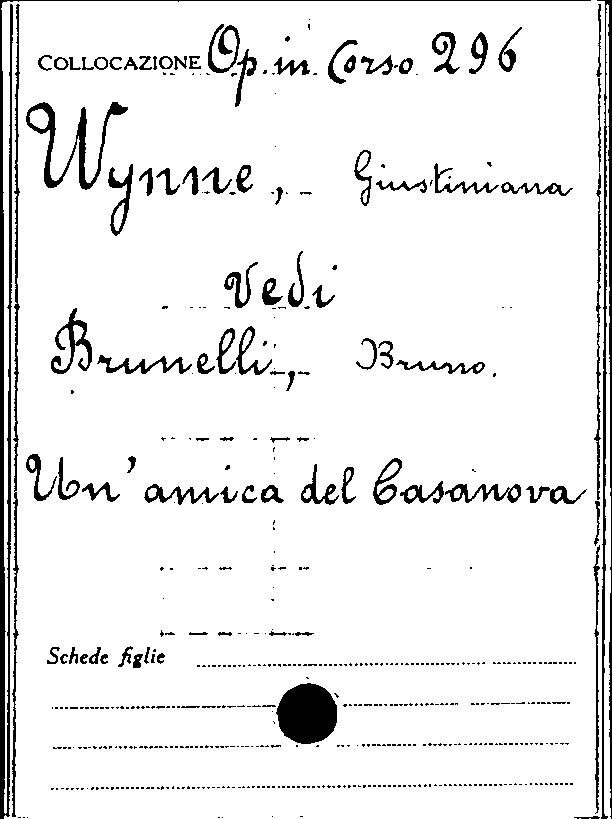 COLLOCAZIONE Op. in Corso 296
Wynne, Giustiniana
Vedi
Brunelli, Bruno.
Un'amica del Casanova
Schede figlie